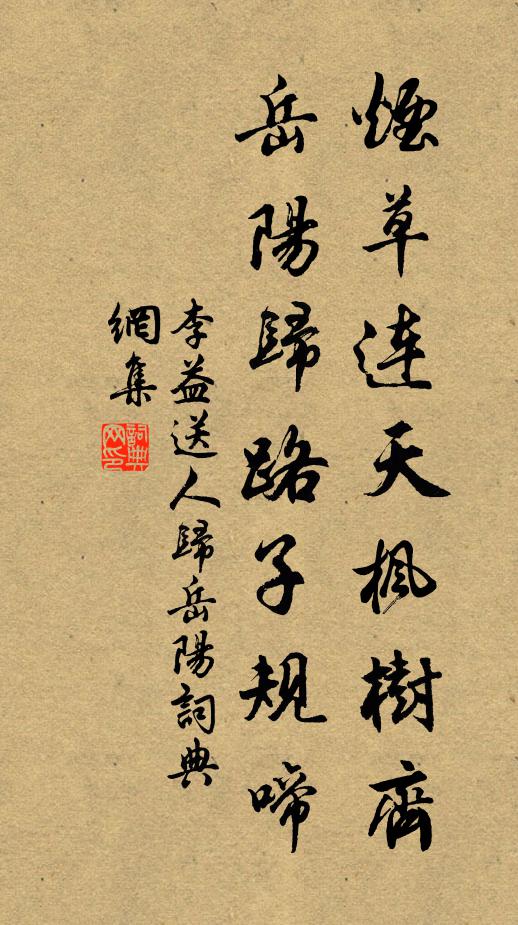 煙草連天楓樹齊
岳陽歸路子規啼
李益送人歸岳陽詞典
網集
詞典網印